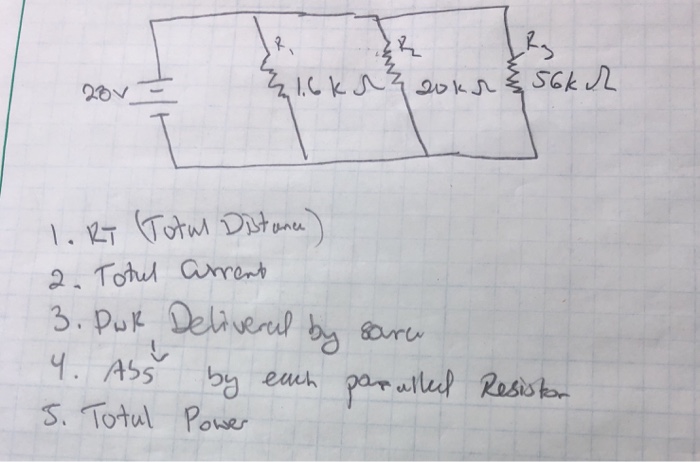 R1 R2 R3
28V 1.6 k Ω 20k Ω 56k Ω
1. RT (Total Distance)
2. Total Current
3. Pwr Delivered by source
4. Abs ↓ by each parallel Resistor
5. Total Power